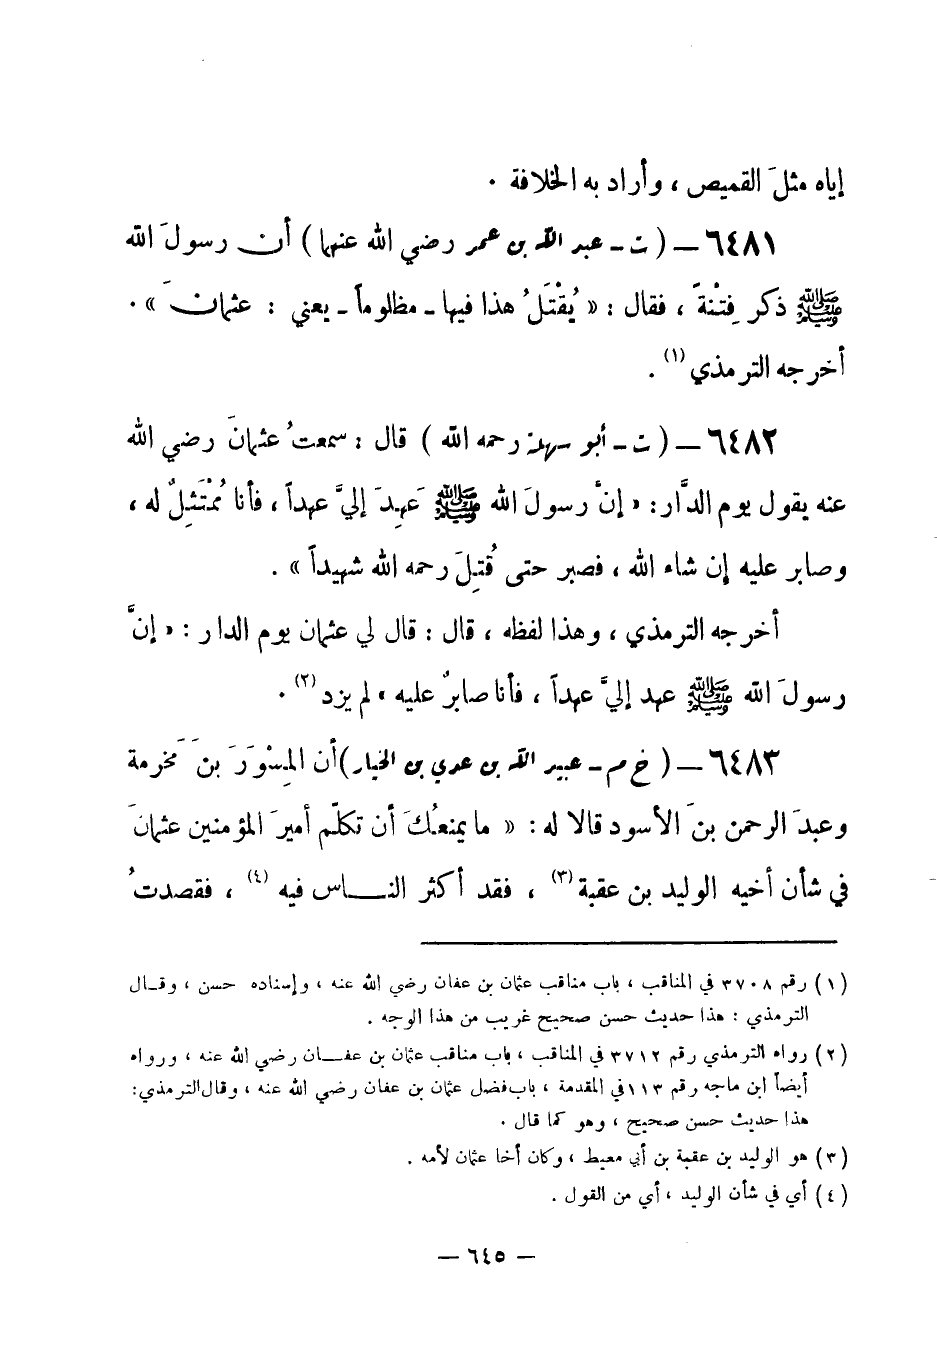 إياه مثلَ القميص ، وأراد به الخلافة .
٦٤٨١ — ( ت ـ عبد الله بن عمر رضي الله عنهما ) أن رسولَ الله
ﷺ ذكر فِتْنةً ، فقال : « يُقْتَلُ هذا فيها ـ مظلوماً ـ يعني : عثمانَ » .
أخرجه الترمذي (١) .
٦٤٨٢ — ( ت ـ أبو سهلة رحمه الله ) قال : سمعتُ عثمانَ رضي الله
عنه يقول يوم الدَّار : « إنَّ رسولَ الله ﷺ عَهِدَ إليَّ عهداً ، فأنا مُمْتَثِلٌ له ،
وصابر عليه إن شاء الله ، فصبر حتى قُتِلَ رحمه الله شهيداً » .
أخرجه الترمذي ، وهذا لفظه ، قال : قال لي عثمان يوم الدار : « إنَّ
رسولَ الله ﷺ عهد إليَّ عهداً ، فأنا صابرٌ عليه » لم يزد (٢) .
٦٤٨٣ — ( خ م ـ عبيد الله بن عدي بن الخيار ) أن المِسْوَرَ بنَ مَخرمة
وعبدَ الرحمن بنَ الأسود قالا له : « ما يمنعُكَ أن تكلّم أميرَ المؤمنين عثمانَ
في شأن أخيه الوليد بن عقبة (٣) ، فقد أكثر النــاس فيه (٤) ، فقصدتُ
(١) رقم ٣٧٠٨ في المناقب ، باب مناقب عثمان بن عفان رضي الله عنه ، وإسناده حسن ، وقـال
الترمذي : هذا حديث حسن صحيح غريب من هذا الوجه .
(٢) رواه الترمذي رقم ٣٧١٢ في المناقب ، باب مناقب عثمان بن عفــان رضي الله عنه ، ورواه
أيضاً ابن ماجه رقم ١١٣ في المقدمة ، باب فضل عثمان بن عفان رضي الله عنه ، وقال الترمذي :
هذا حديث حسن صحيح ، وهو كما قال .
(٣) هو الوليد بن عقبة بن أبي معيط ، وكان أخا عثمان لأمه .
(٤) أي في شأن الوليد ، أي من القول .
— ٦٤٥ —